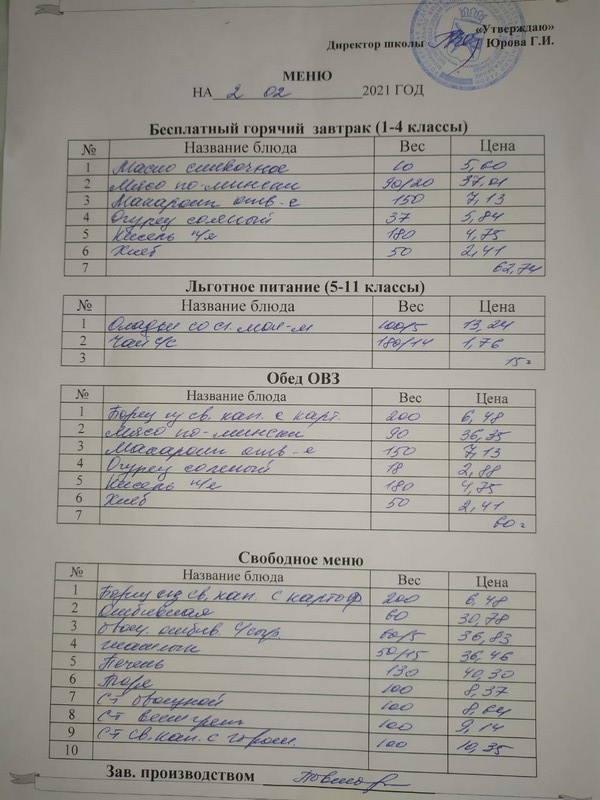 «Утверждаю»
Директор школы Юрова Г.И.
МЕНЮ
НА 2 02 2021 ГОД
Бесплатный горячий завтрак (1-4 классы)
№ Название блюда Вес Цена
1 Масло сливочное 10 5,60
2 Мясо по-мински 90/20 37,01
3 Макароны отв-е 150 7,13
4 Огурец соленый 37 5,84
5 Кисель п/я 180 4,75
6 Хлеб 50 2,41
7 62,74
Льготное питание (5-11 классы)
№ Название блюда Вес Цена
1 Оладьи со сг. мол-м 100/5 13,24
2 Чай с/с 180/14 1,76
3 15=
Обед ОВЗ
№ Название блюда Вес Цена
1 Борщ из св. кап. с карт. 200 6,48
2 Мясо по-мински 90 36,35
3 Макароны отв-е 150 7,13
4 Огурец соленый 18 2,88
5 Кисель п/я 180 4,75
6 Хлеб 50 2,41
7 60=
Свободное меню
№ Название блюда Вес Цена
1 Борщ из св. кап. с картоф. 200 6,48
2 Отбивная 60 30,78
3 отбив. с/сыр. 60/5 36,83
4 50/15 36,46
5 Печень 130 40,30
6 Пюре 100 8,37
7 Ст овощной 100 8,64
8 Ст 100 9,14
9 Ст св. кап. с горош. 100 10,35
10
Зав. производством